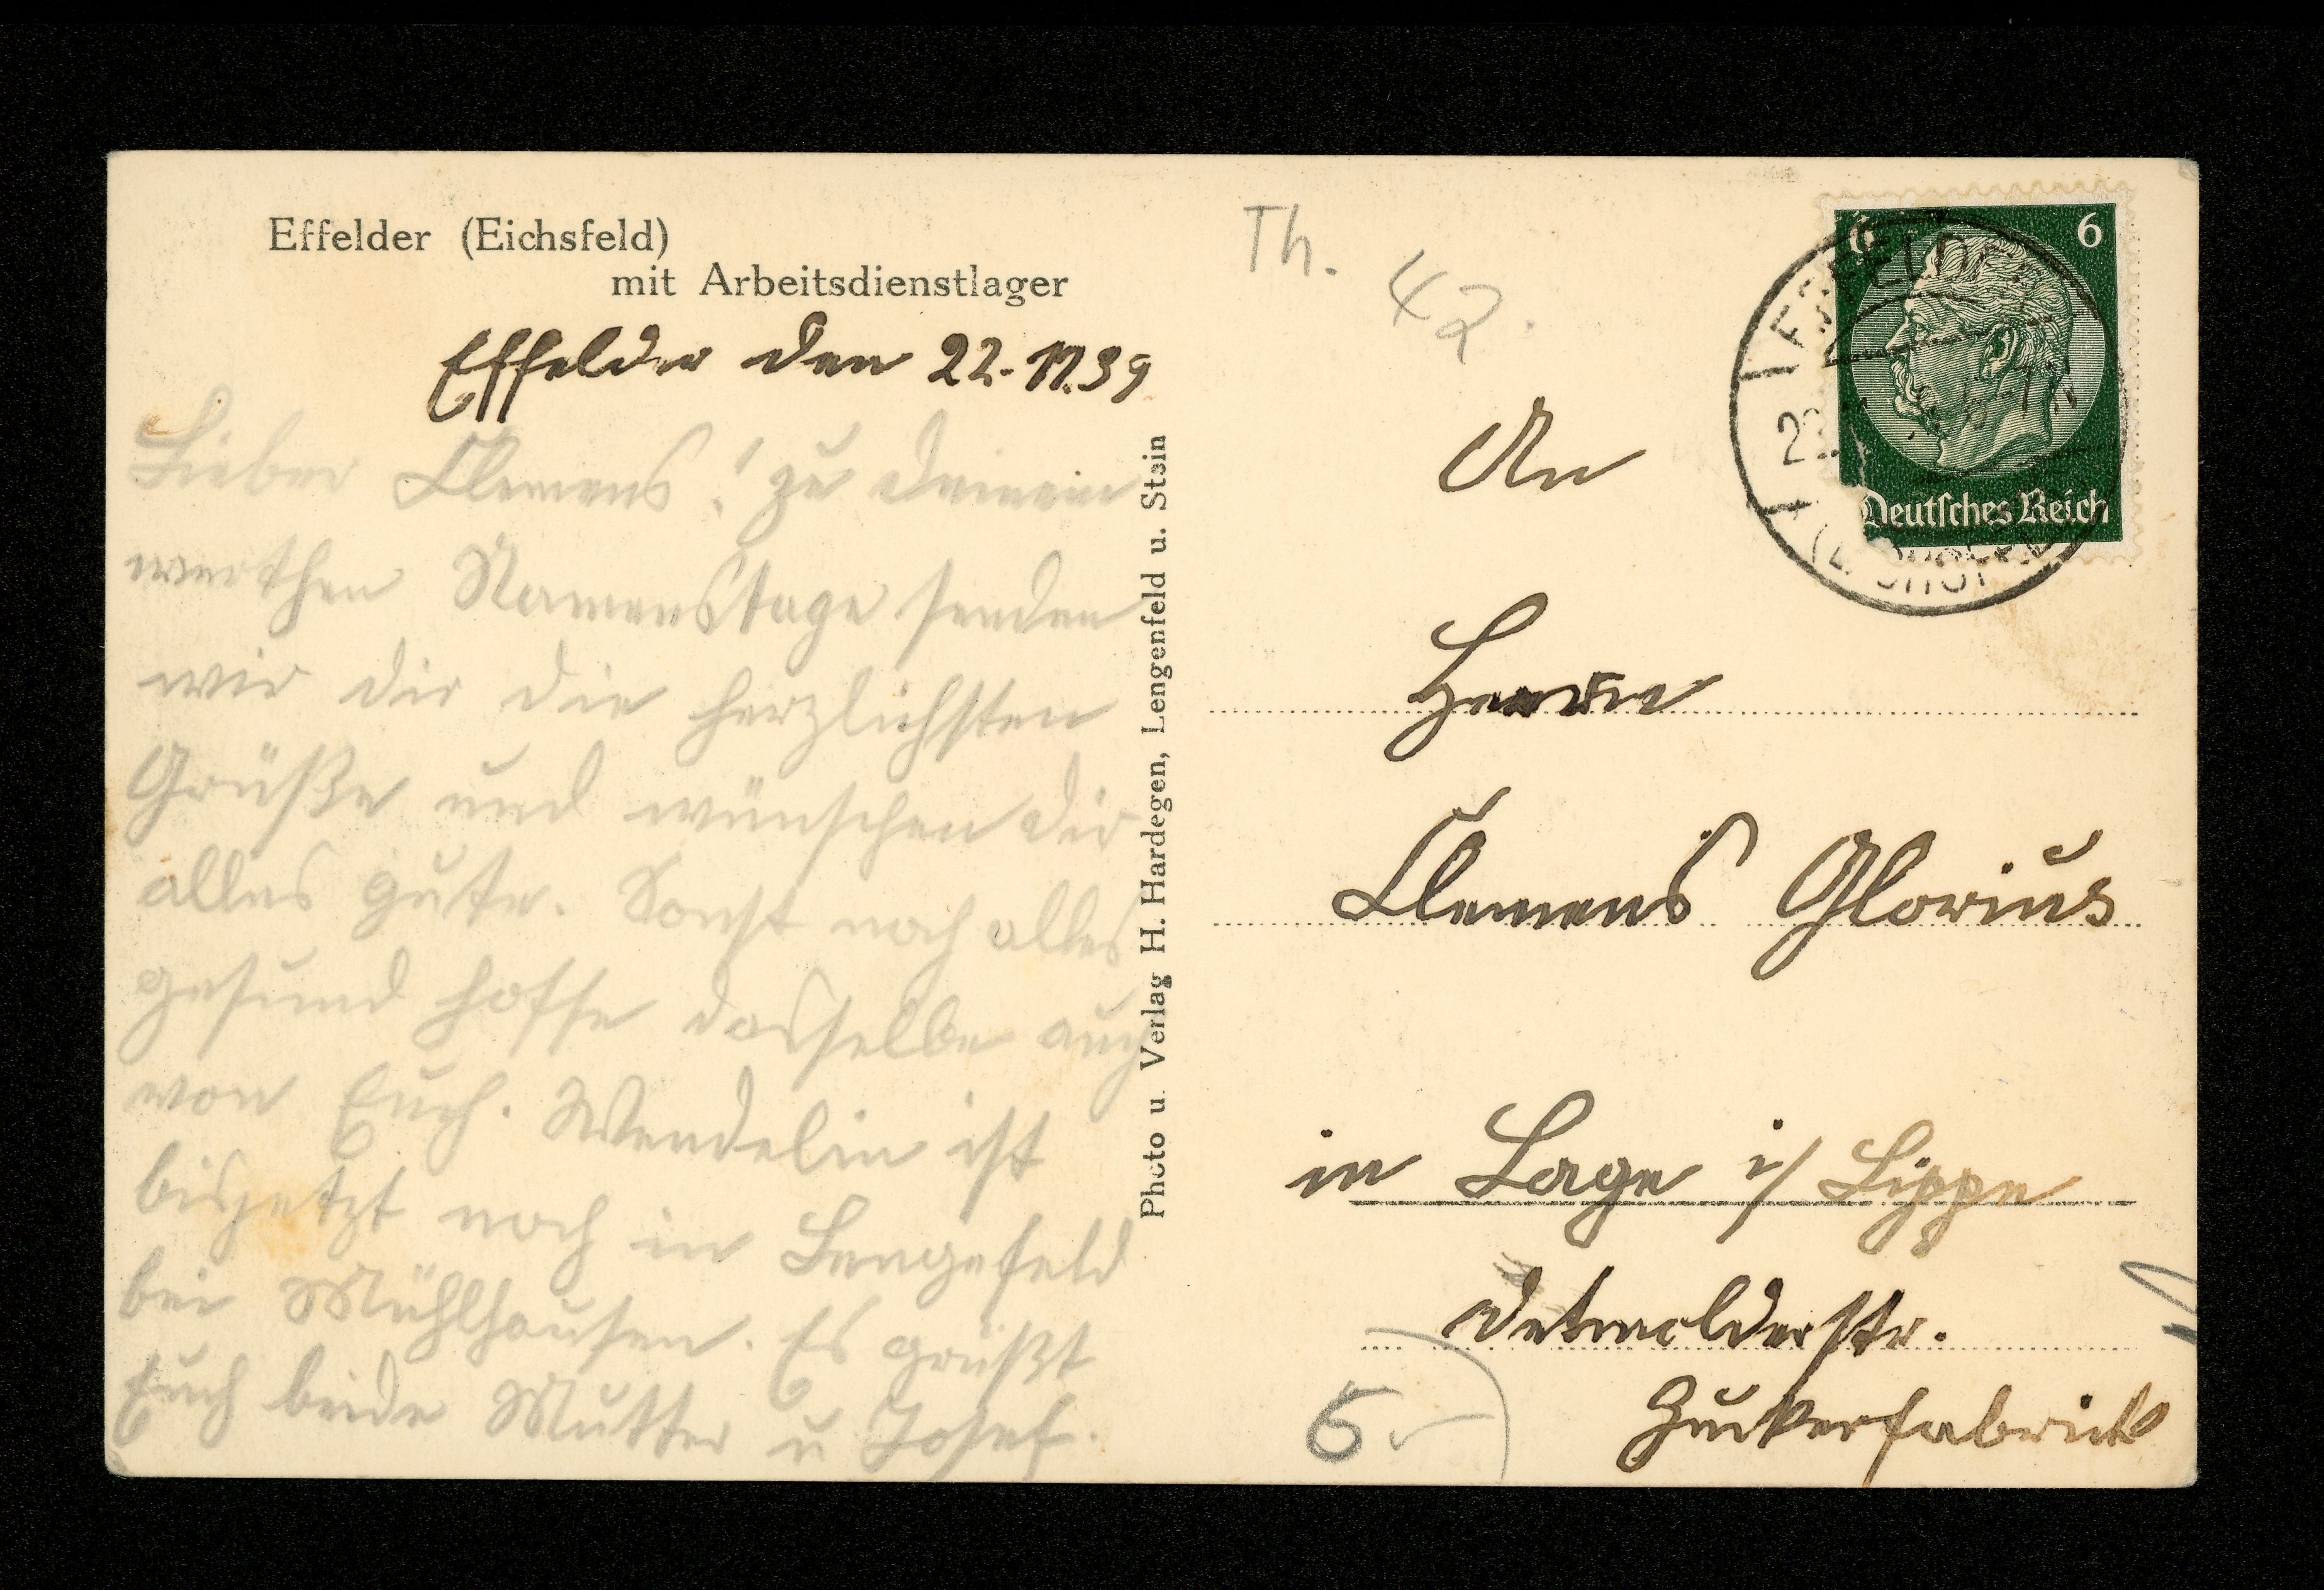 Effelder (Eichsfeld)
mit Arbeitsdienstlager
Effelder den 22.11.39
Lieber Clemens! zu deinem
werthen Namenstage senden
wir dir die herzlichsten
Grüße und wünschen dir
alles gute. Sonst noch alles
gesund hoffe dasselbe auch
von Euch. Wendelin ist
bisjetzt noch in Lengefeld
bei Mühlhausen. Es grüßt
Euch beide Mutter u Josef.
Photo u. Verlag H. Hardegen, Lengenfeld u. Stein
Th. 42.
6 6
Deutsches Reich
EFFELDER
An
Herrn
Clemens Glorius
in Lage i/ Lippe
Detmolderstr.
Zuckerfabrick
5.-